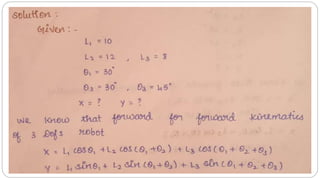 Solution :
Given : -
L₁ = 10
L₂ = 12 , L₃ = 8
θ₁ = 30°
θ₂ = 30° , θ₃ = 45°
x = ? y = ?
we know that forward for forward kinematics
of 3 Dofs robot
x = L₁ cosθ₁ + L₂ cos(θ₁+θ₂) + L₃ cos(θ₁ + θ₂ + θ₃)
y = L₁ sinθ₁ + L₂ sin(θ₁+θ₂) + L₃ sin(θ₁ + θ₂ + θ₃)